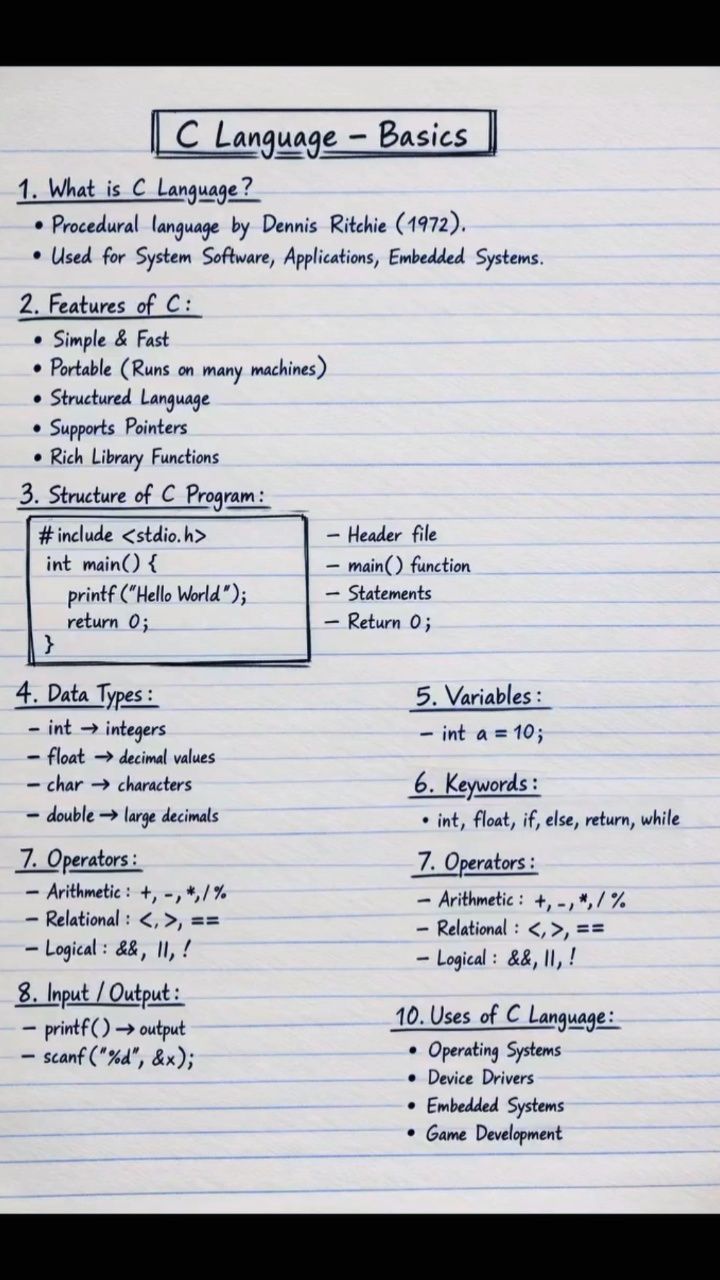 C Language – Basics
1. What is C Language?
• Procedural language by Dennis Ritchie (1972).
• Used for System Software, Applications, Embedded Systems.
2. Features of C:
• Simple & Fast
• Portable (Runs on many machines)
• Structured Language
• Supports Pointers
• Rich Library Functions
3. Structure of C Program:
# include <stdio.h>
int main() {
printf("Hello World");
return 0;
}
– Header file
– main() function
– Statements
– Return 0;
4. Data Types:
– int → integers
– float → decimal values
– char → characters
– double → large decimals
5. Variables:
– int a = 10;
6. Keywords:
• int, float, if, else, return, while
7. Operators:
– Arithmetic : +, -, *, / %
– Relational : <, >, ==
– Logical : &&, ||, !
7. Operators:
– Arithmetic : +, -, *, / %
– Relational : <, >, ==
– Logical : &&, ||, !
8. Input / Output:
– printf() → output
– scanf("%d", &x);
10. Uses of C Language:
• Operating Systems
• Device Drivers
• Embedded Systems
• Game Development